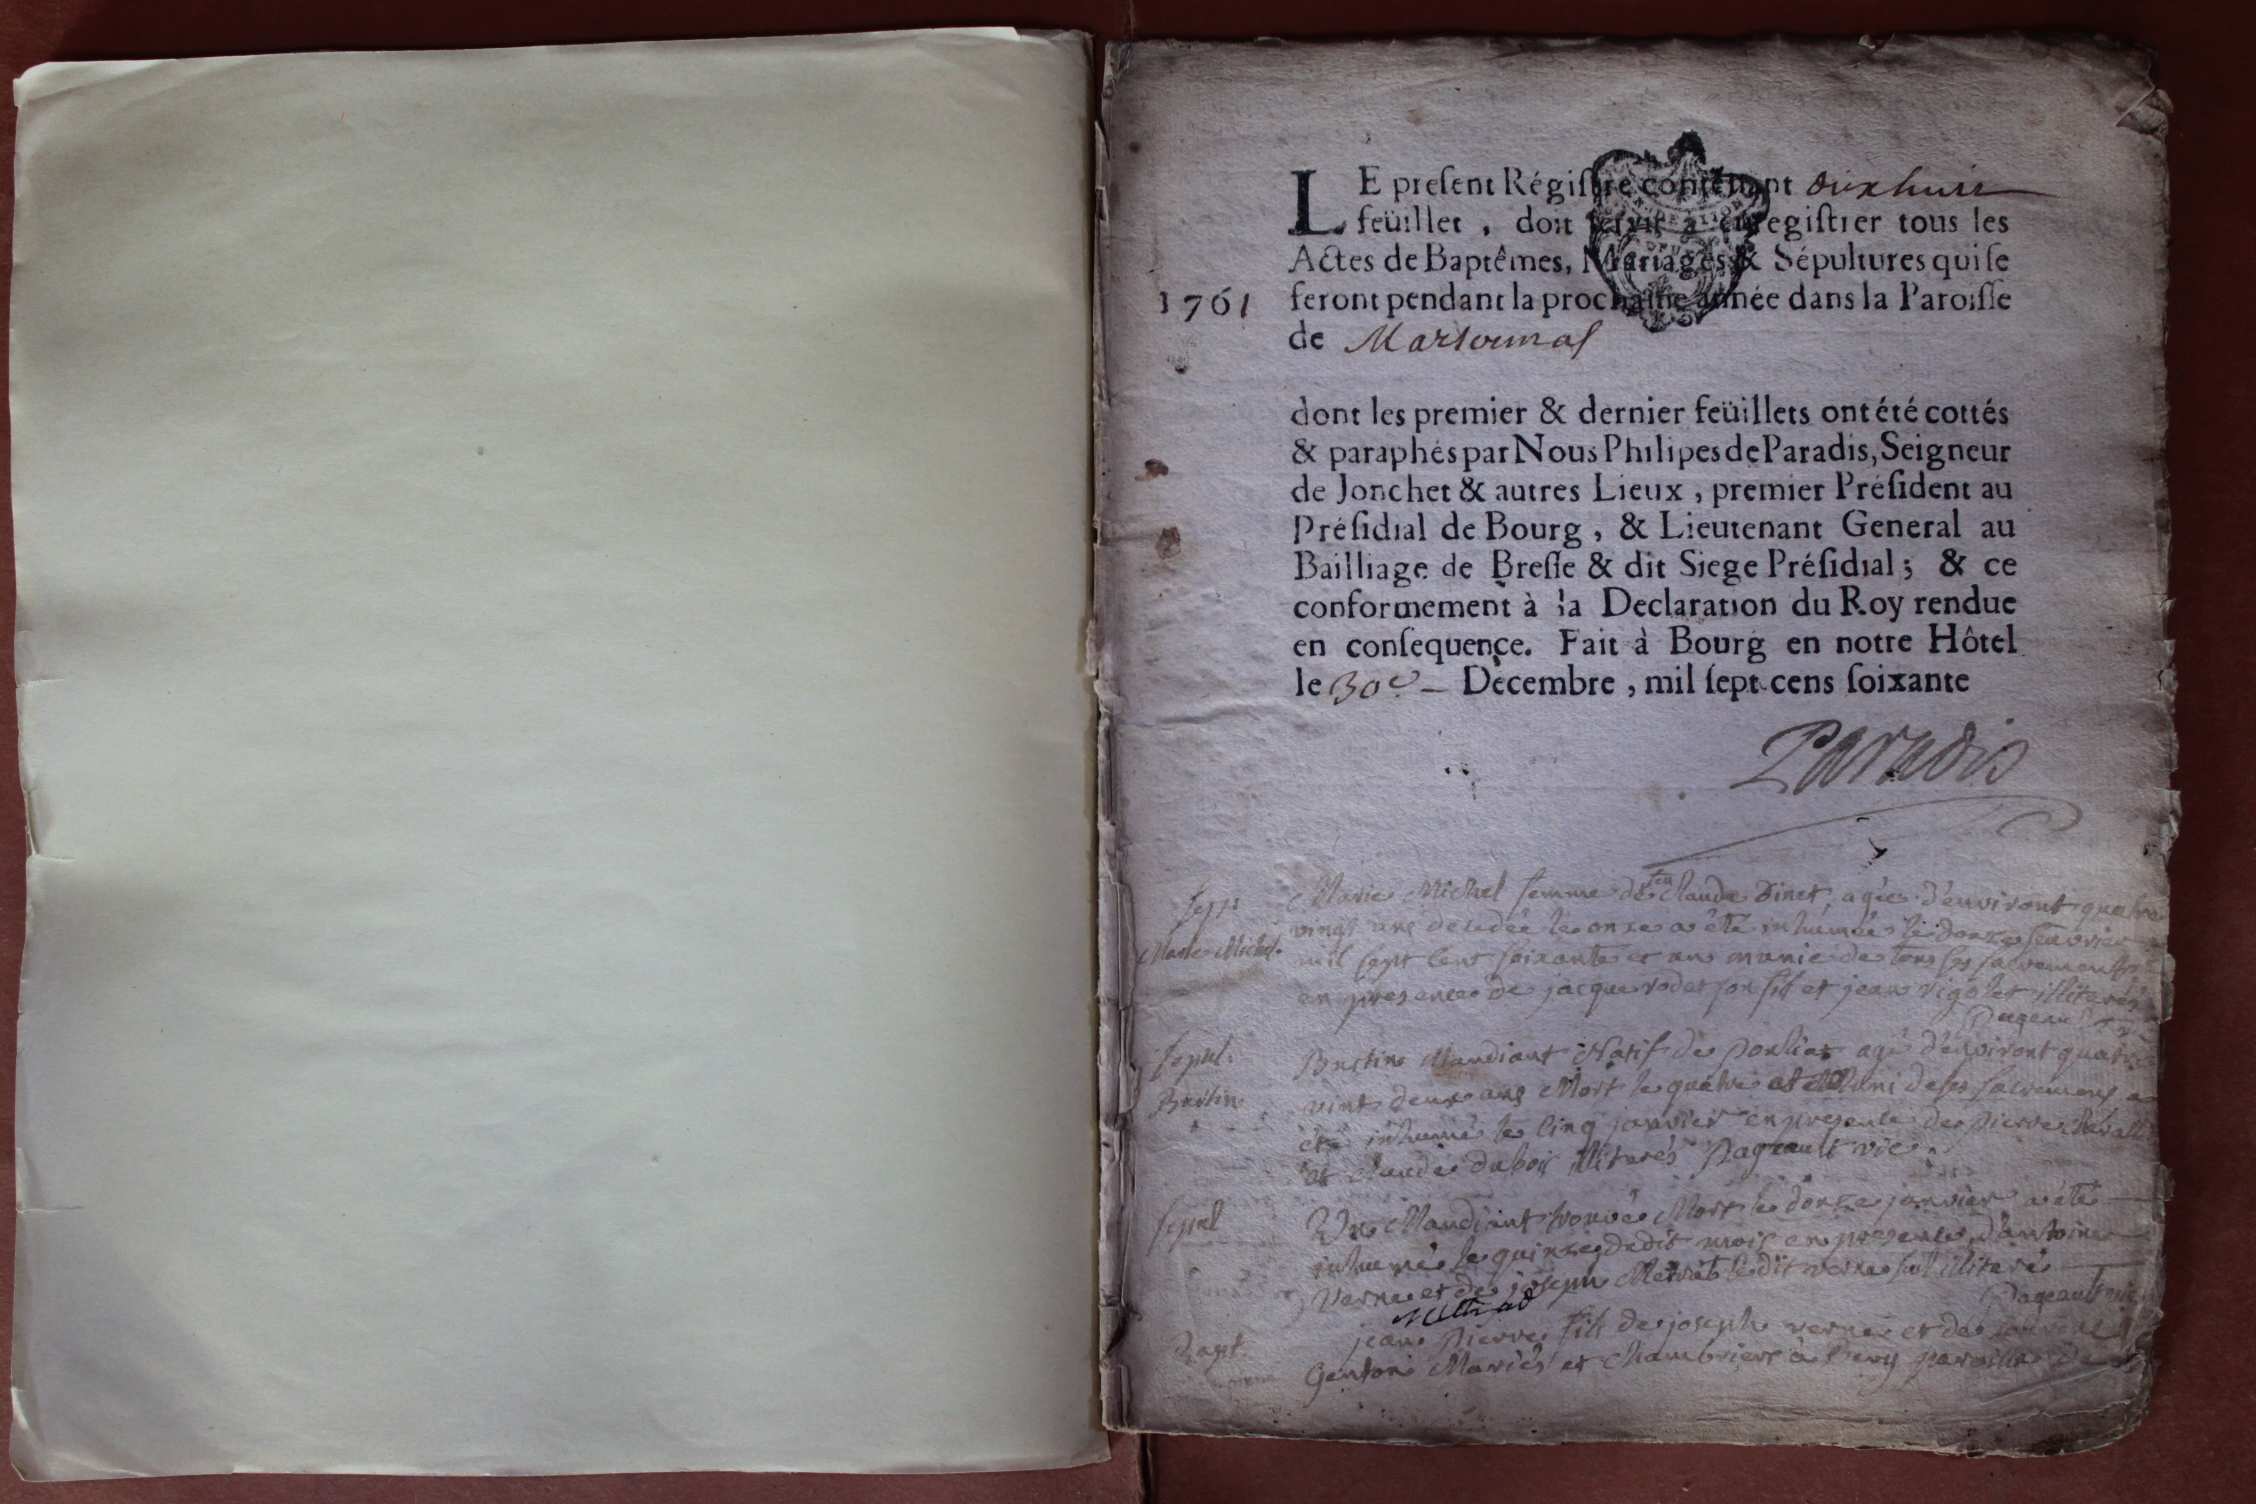 LE preſent Régiſtre contenant dixhuit
feüillet , doit ſervir à enregiſtrer tous les
Actes de Baptêmes, Mariages & Sépultures qui ſe
1761
feront pendant la prochaine année dans la Paroiſſe
de Marsonnas
dont les premier & dernier feüillets ont été cottés
& paraphés par Nous Philipes de Paradis, Seigneur
de Jonchet & autres Lieux , premier Préſident au
Préſidial de Bourg , & Lieutenant General au
Bailliage de Breſſe & dit Siege Préſidial ; & ce
conformement à la Declaration du Roy rendue
en conſequence. Fait à Bourg en notre Hôtel
le 30e Decembre , mil ſept cens ſoixante
Paradis
sepu
Marie Michel
Marie Michel femme de feu Claude Dinet, agée d'environt quatre
vingt ans decedée le onze a été inhumée le douze
mil sept cent soixante et un munie de tous ses sacrements
en presence de jacque rodet son fils et jean illiterés
sepul.
Bastin
Bastin Mandiant Natif de agé d'environt quatre
vint deux ans Mort le quatre et Muni de ses sacremens a
été inhumé le cinq janvier en presence de pierre
et claude dubois illiterés Pageault vic.
sepul
Un Mandiant trouvé Mort le janvier a été
inhumé le quinze dedit mois en presence d'antoine
Verne et de joseph le dit verne illiteré
Pageault vic
Bapt.
jean pierre fils de joseph verne et de
Genton Mariés et paroisse de